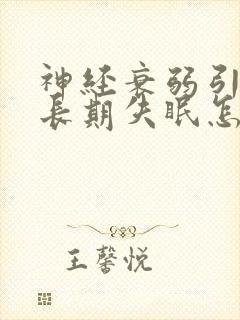 神经衰弱引
长期失眠怎
王馨悦